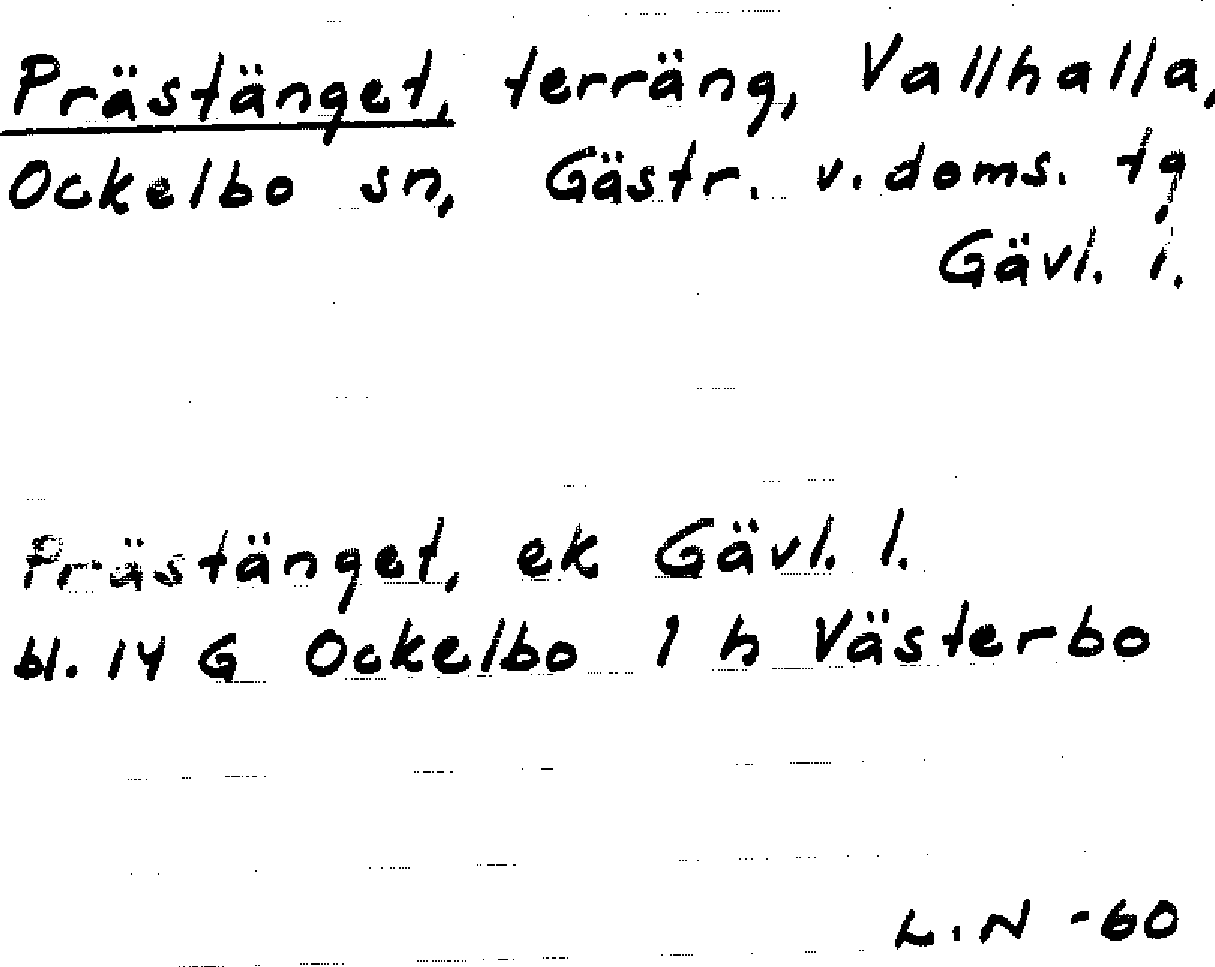 Prästänget, terräng, Vallhalla,
Ockelbo sn, Gästr. v. doms. tg
Gävl. l.
Prästänget, ek Gävl. l.
bl. 14 G Ockelbo 1 h Västerbo
L.N -60